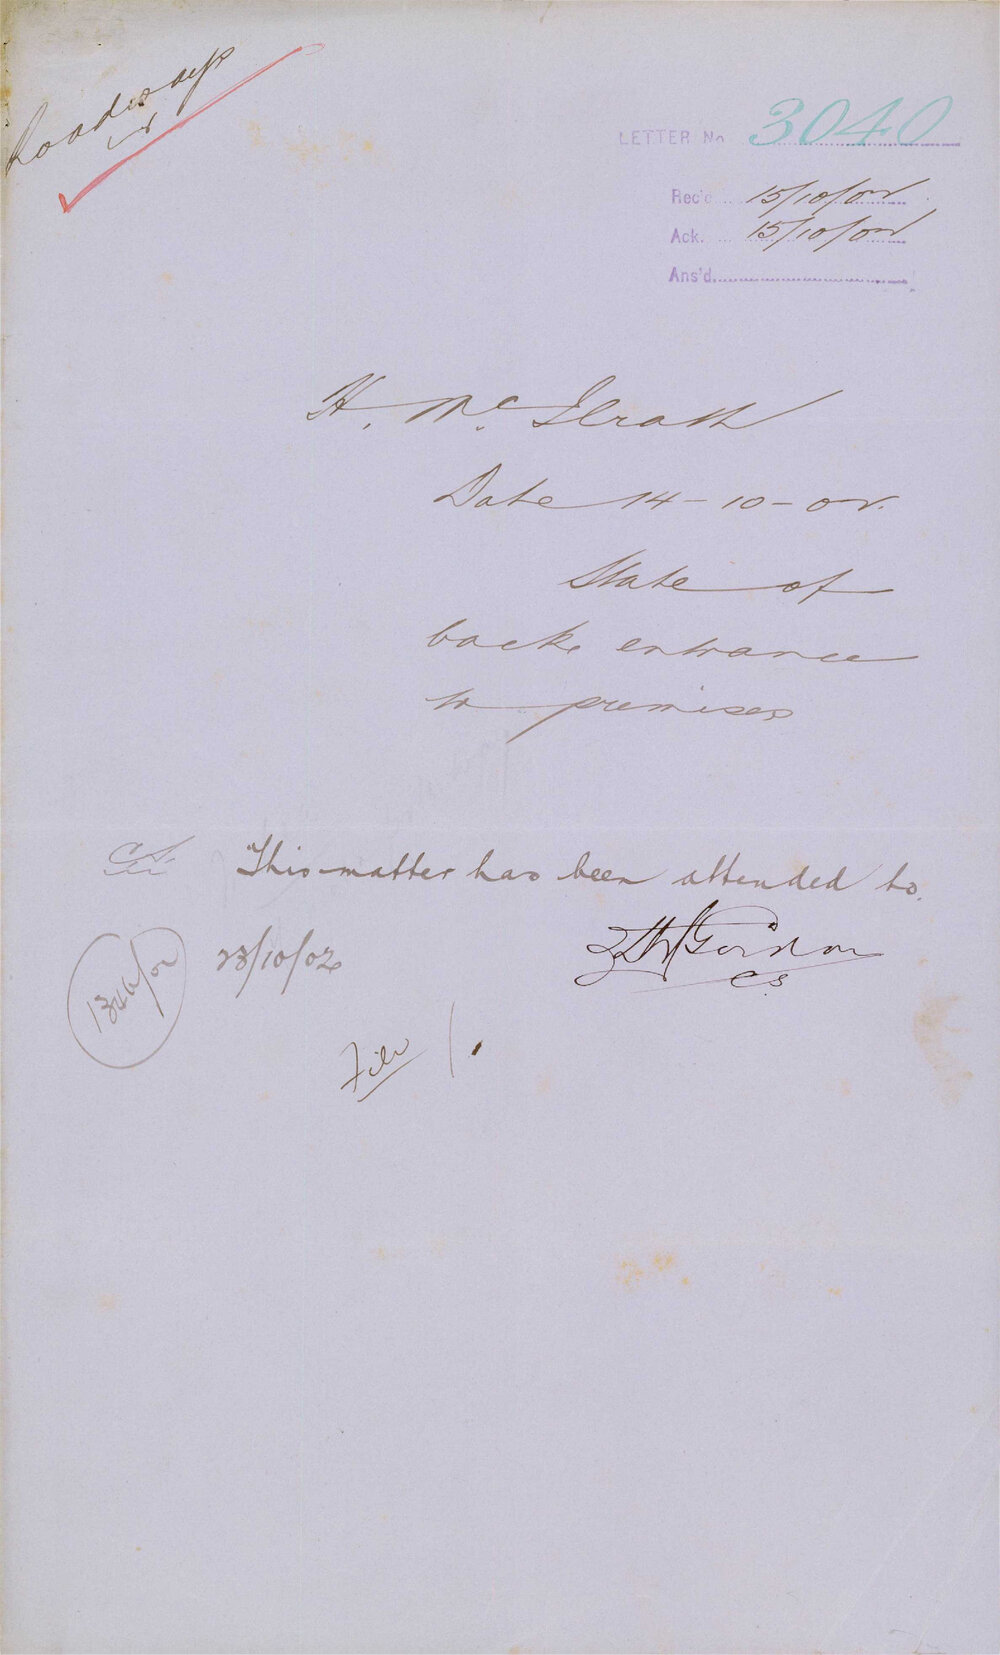 Roadways
LETTER No 3040
Rec'd 15/10/02
Ack. 15/10/02
Ans'd.
H. McIlrath
Date 14-10-02.
State of
back entrance
to premises
This matter has been attended to.
23/10/02
Gordon
CS
File